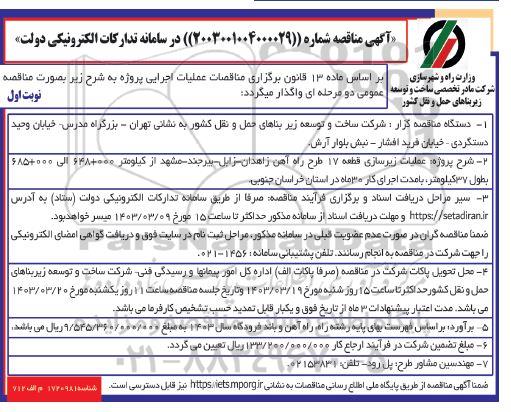 «آگهی مناقصه شماره ((۲۰۰۳۰۰۱۰۰۴۰۰۰۰۲۹)) در سامانه تدارکات الکترونیکی دولت»
وزارت راه و شهرسازی
شرکت مادر تخصصی ساخت و توسعه
زیربناهای حمل و نقل کشور
بر اساس ماده ۱۳ قانون برگزاری مناقصات عملیات اجرایی پروژه به شرح زیر بصورت مناقصه
عمومی دو مرحله ای واگذار میگردد:
نوبت اول
۱- دستگاه مناقصه گزار : شرکت ساخت و توسعه زیر بناهای حمل و نقل کشور به نشانی تهران - بزرگراه مدرس- خیابان وحید
دستگردی - خیابان فرید افشار - نبش بلوار آرش.
۲- شرح پروژه: عملیات زیرسازی قطعه ۱۷ طرح راه آهن زاهدان-زابل-بیرجند-مشهد از کیلومتر ۶۴۸+۰۰۰ الی ۶۸۵+۰۰۰
بطول ۳۷کیلومتر، بامدت اجرای کار ۳۰ماه در استان خراسان جنوبی.
۳- سیر مراحل دریافت اسناد و برگزاری فرآیند مناقصه: صرفا از طریق سامانه تدارکات الکترونیکی دولت (ستاد) به آدرس
https://setadiran.ir و مهلت دریافت اسناد از سامانه مذکور حداکثر تا ساعت ۱۵ مورخ ۱۴۰۳/۰۳/۰۹ میسر خواهدبود.
ضمنا مناقصه گران در صورت عدم عضویت قبلی در سامانه مذکور، مراحل ثبت نام در سایت فوق و دریافت گواهی امضای الکترونیکی
را جهت شرکت در مناقصه به انجام رسانند. تلفن پشتیبانی سامانه: ۱۴۵۶-۰۲۱.
۴- محل تحویل پاکات شرکت در مناقصه (صرفا پاکات الف) اداره کل امور پیمانها و رسیدگی فنی- شرکت ساخت و توسعه زیربناهای
حمل و نقل کشور حداکثر تا ساعت ۱۵ روز شنبه مورخ ۱۴۰۳/۰۳/۱۹ وتاریخ جلسه مناقصه ساعت ۱۱ روز یکشنبه مورخ ۱۴۰۳/۰۳/۲۰
می باشد. مدت اعتبار پیشنهادات ۳ ماه از تاریخ فوق و یکبار قابل تمدید حسب تشخیص کارفرما می باشد.
۵- برآورد: براساس فهرست بهای پایه رشته راه، راه آهن و باند فرودگاه سال ۱۴۰۳ به مبلغ ۹/۵۴۵/۳۶۰/۰۰۰/۰۰۰ ریال می باشد.
۶- مبلغ تضمین شرکت در فرآیند ارجاع کار ۱۳۳/۲۰۰/۰۰۰/۰۰۰ریال تعیین می گردد.
۷- مهندسین مشاور طرح: پل رود- تلفن: ۰۲۱۵۳۸۳۱.
ضمنا آگهی مناقصه از طریق پایگاه ملی اطلاع رسانی مناقصات به نشانی https://iets.mporg.ir نیز قابل دسترسی است.
شناسه ۱۷۲۰۹۸۱ م الف ۷۱۲
۰۲۱-۸۸۳۴۹۶۷۰-۵